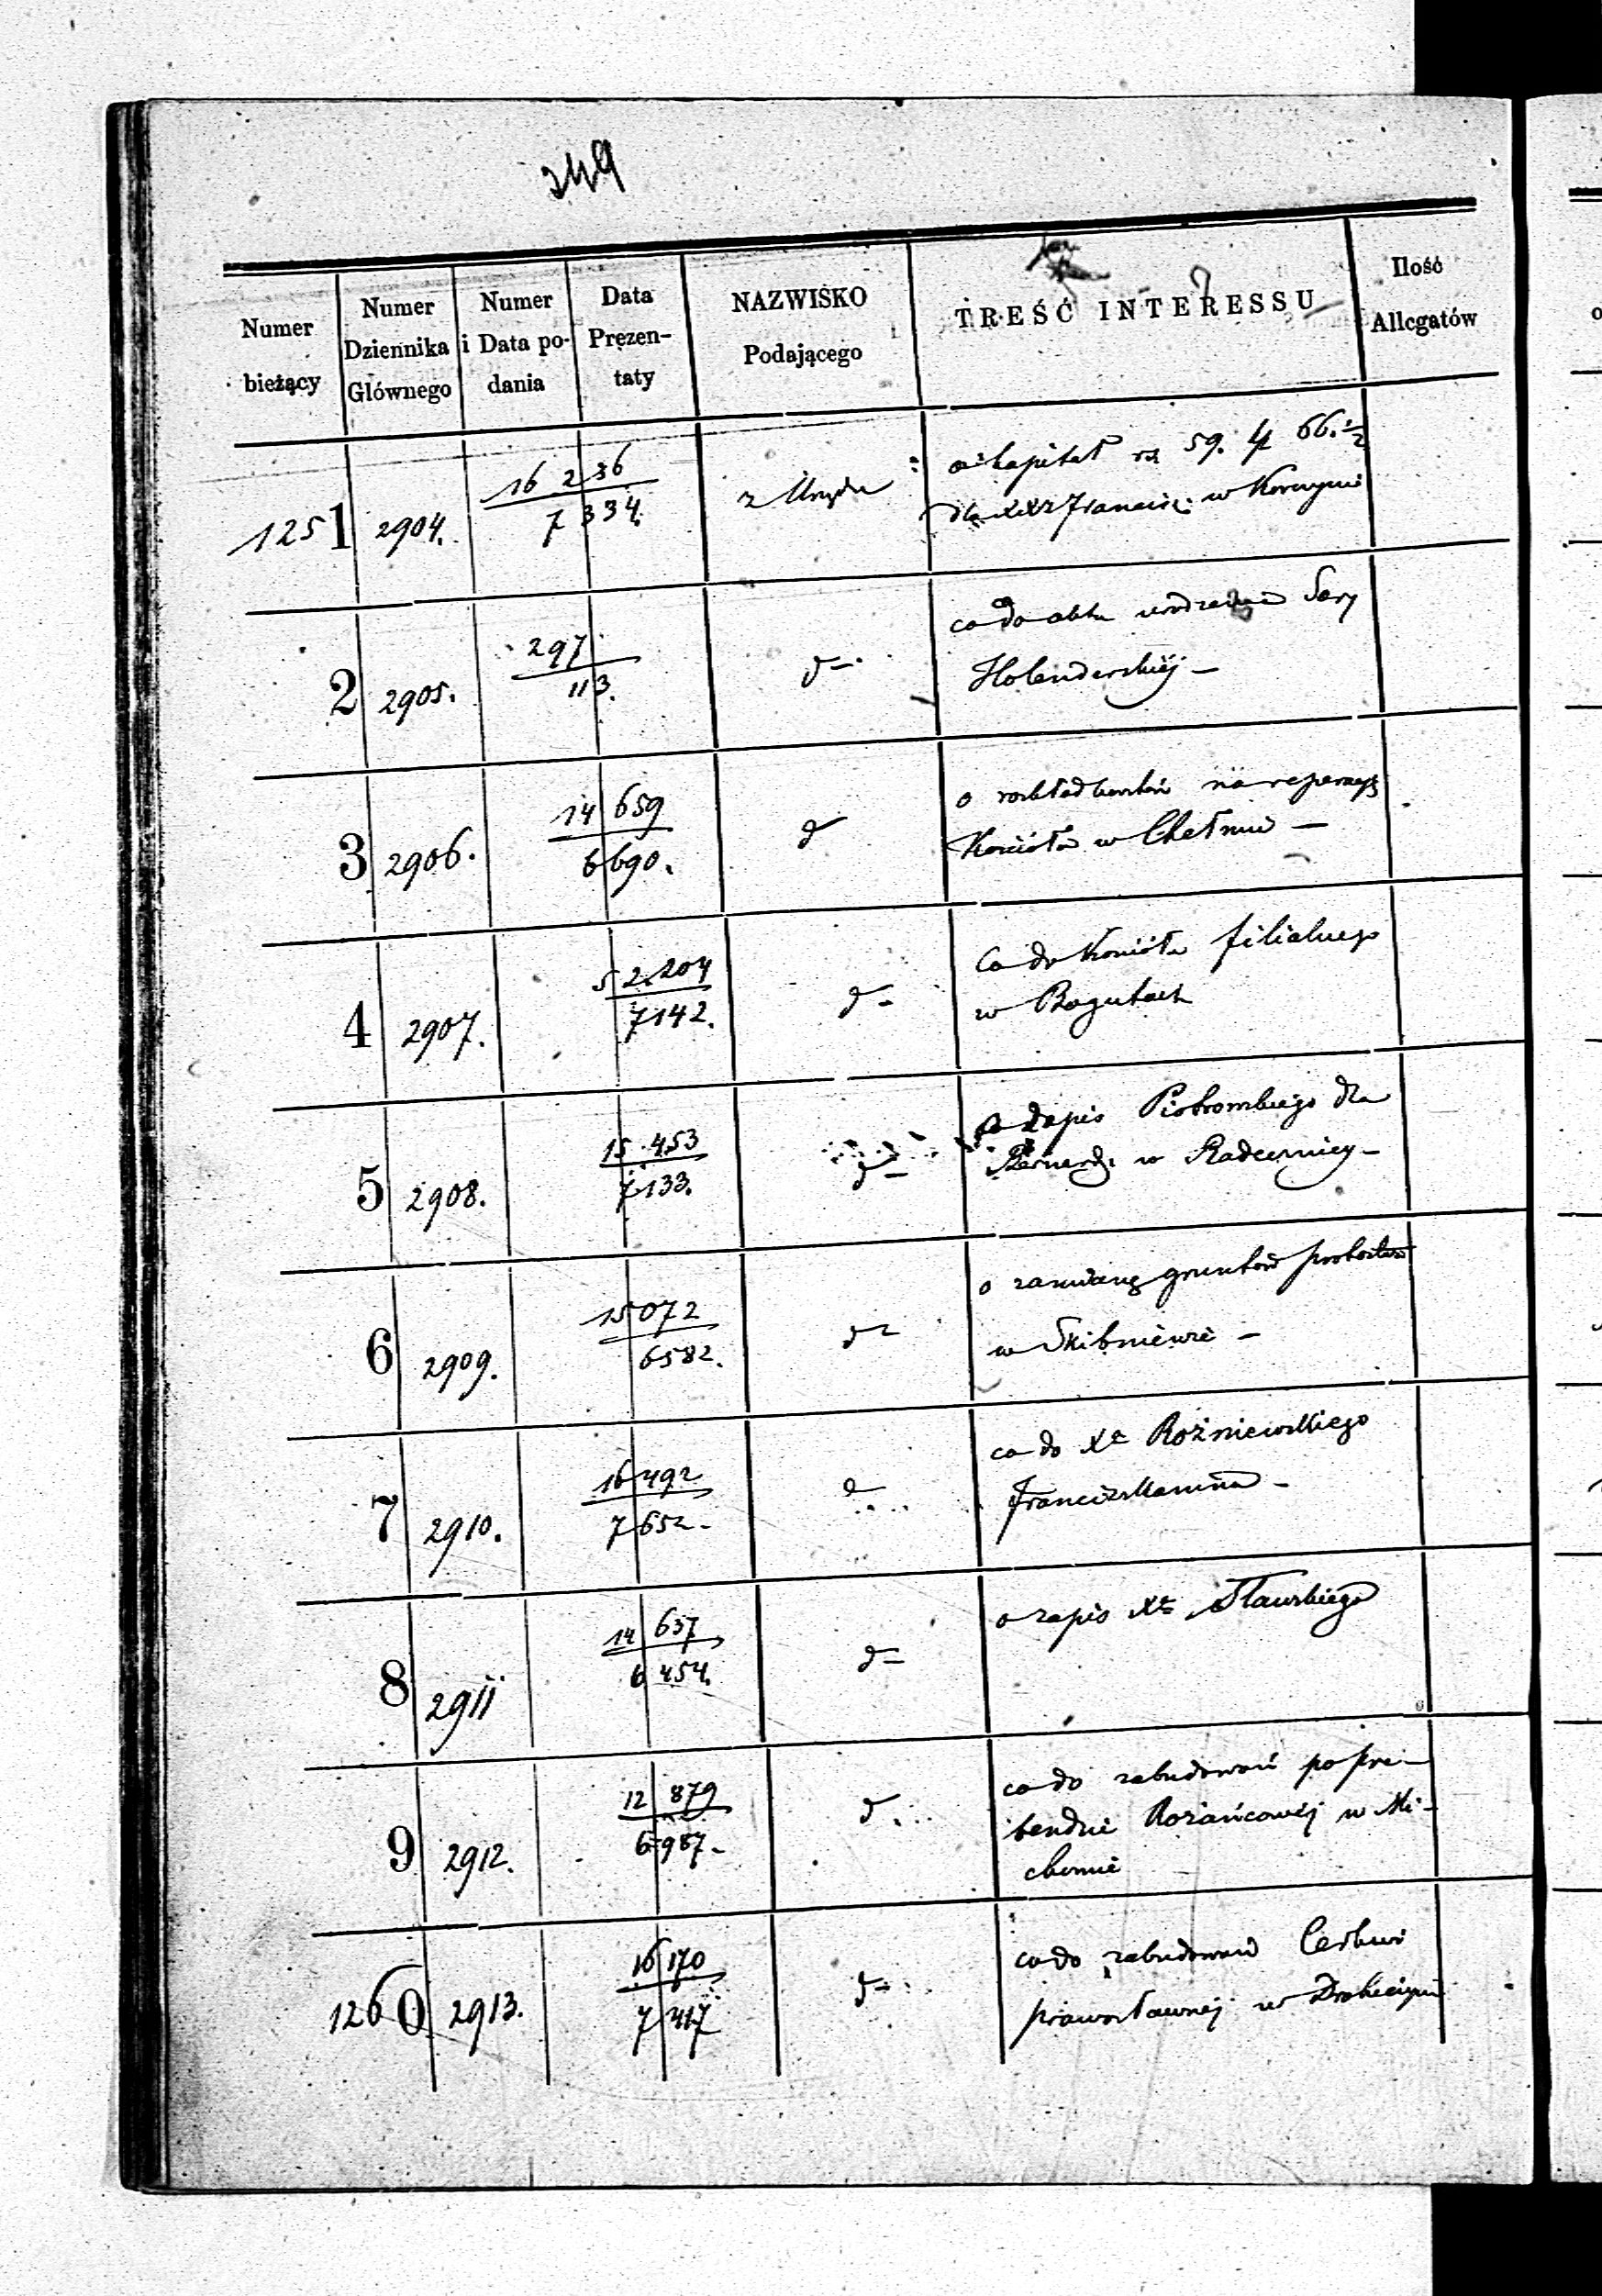 249
Numer bieżący
Numer Dziennika Głównego
Numer i Data podania
Data Prezentaty
NAZWISKO Podającego
TREŚĆ INTERESSU
Ilość Allegatów
1251 2904. 16 236 / 7 334. z Urzędu o kapitał rs 59. k 66.½
dla XX Francisz. w
2 2905. 297 / 113. d– co do aktu urodzenia Sary
Holenderskiéj –
3 2906. 14 659 / 6 690. d o rozkład kosztów na reperacyę
Kościoła w Chełmie –
4 2907. 52.204 / 7142. d– Co do Kościoła filialnego
w Bogutach
5 2908. 15.453 / 7133. d– o zapis Piotrowskiego dla
Bernard. w Radecznicy –
6 2909. 15072 / 6582. d– o zamianę gruntów probostwa
w Skibniewie –
7 2910. 16492 / 7652. d co do Xa Rożniewskiego
Franciszkanina –
8 2911 14 637 / 6 454. d– o zapis Xa Sławskiego
9 2912. 12 879 / 6 987. d co do zabudowań po pre-
bendzie Rożańcowéj w Mi-
chowie
1260 2913. 16 170 / 7 417 d– co do zabudowań Cerkwi
prawosławnéj w Drohiczynie